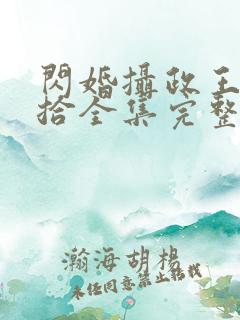 閃婚攝政王
拾全集完整
瀚海胡楊
未經同意禁止轉載